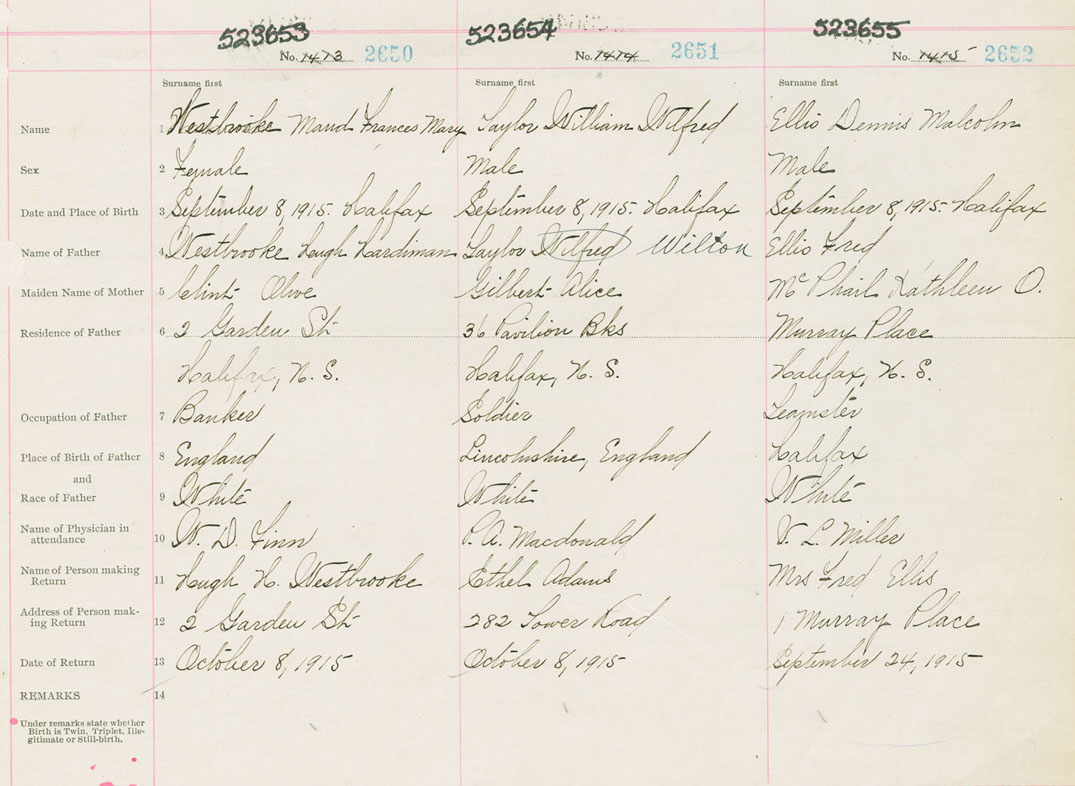 523653 523654 523655
No. 1413 2650 No. 1414 2651 No. 1415 2652
Surname first Surname first Surname first
Name 1 Westbrooke Maud Frances Mary Taylor William Wilfred Ellis Dennis Malcolm
Sex 2 Female Male Male
Date and Place of Birth 3 September 8, 1915. Halifax September 8, 1915. Halifax September 8, 1915. Halifax
Name of Father 4 Westbrooke Hugh Hardiman Taylor Wilfred Wilton Ellis Fred
Maiden Name of Mother 5 Clint Olive Gilbert Alice McPhail Kathleen O.
Residence of Father 6 2 Garden St 36 Pavilion Bks Murray Place
Halifax, N. S. Halifax, N. S. Halifax, N. S.
Occupation of Father 7 Banker Soldier Teamster
Place of Birth of Father 8 England Lincolnshire, England Halifax
and
Race of Father 9 White White White
Name of Physician in
attendance 10 W. D. Finn P. A. Macdonald V. L. Miller
Name of Person making
Return 11 Hugh H. Westbrooke Ethel Adams Mrs Fred Ellis
Address of Person mak-
ing Return 12 2 Garden St 282 Tower Road 1 Murray Place
Date of Return 13 October 8, 1915 October 8, 1915 September 24, 1915
REMARKS 14
Under remarks state whether
Birth is Twin, Triplet, Ille-
gitimate or Still-birth.